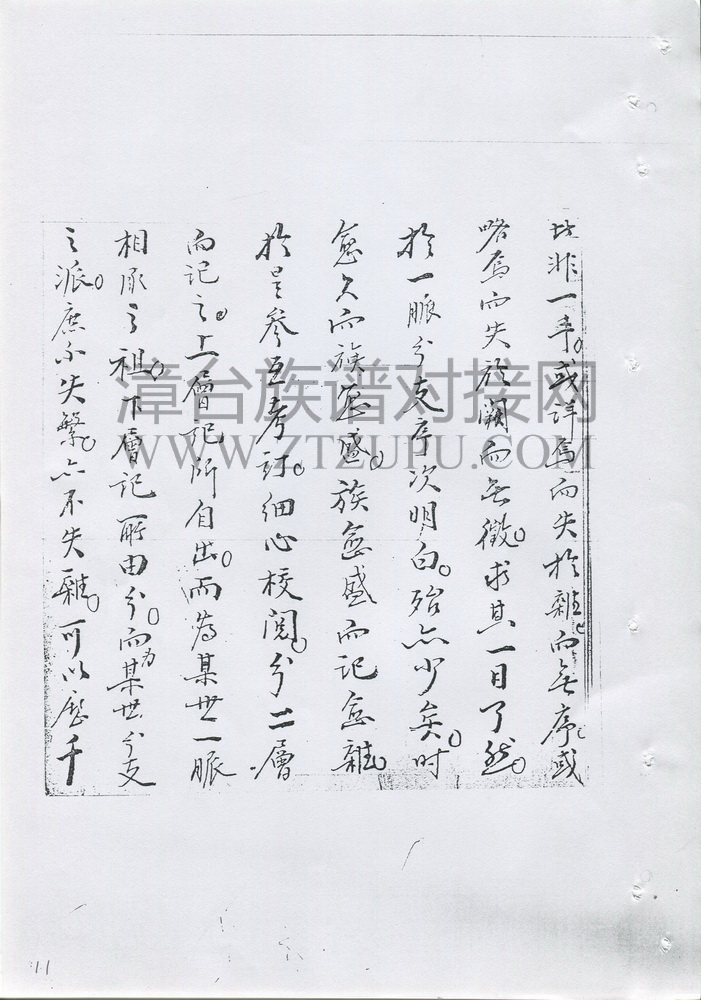 非一手。或詳焉而失於雜而無序。或
略焉而失於闕而無徵。求其一目了然。
於一脈分支序次明白。殆亦少矣。时
愈久而族愈盛。族愈盛而記愈雜。
於是參互考訂。細心校閱。分二層
而記之。上層記所自出。而為某世一脈
相承之祖。下層記所由分。而为某世分支
之派。庶不失繁。亦不失雜。可以歷千
漳台族谱对接网
WWW.ZTZUPU.COM
11